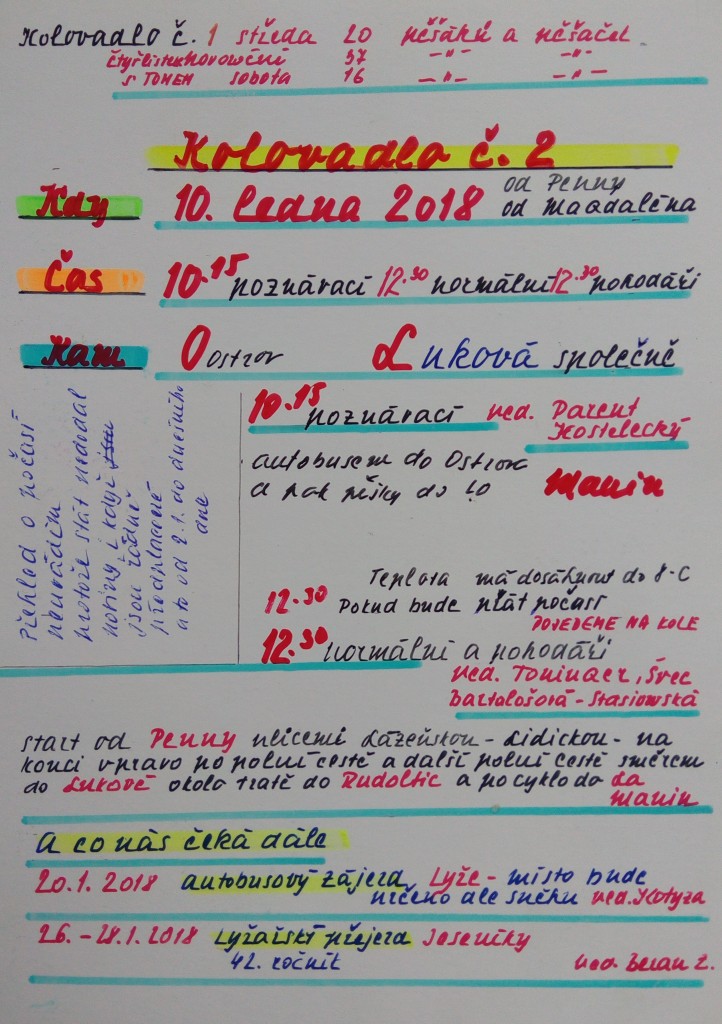 Kolovadlo č. 1 středa 20 pěšáků a pěšaček
čtyřlístek novoroční 37 -"- -"-
s TOMEM sobota 16 -"- -"-
Kolovadlo č. 2
Kdy 10. ledna 2018 od Penny
od Magdaléna
Čas 10.15 poznávací 12.30 normální 12.30 pohodáři
Kam O Ostrov Luková společně
Přehled o počasí
neuvádím
protože stát nedodal
noviny i když jsou
jsou řádně
předplacené
a to od 2.1. do dnešního
dne
10.15 poznávací ved. Parent
Kostelecký
autobusem do Ostrova
a pak pěšky do LO Manin
Teplota má dosáhnout do 8°C
12.30 Pokud bude přát počasí
POJEDEME NA KOLE
12.30 normální a pohodáři
ved. Toninger, Švec
Bartološová - Stasiowská
start od Penny ulicemi Lázeňskou - Lidickou - na
konci vpravo po polní cestě a další polní cestě směrem
do Lukové okolo tratě do Rudoltic a po cyklo do La
Manin
A co nás čeká dále
20.1. 2018 autobusový zájezd Lyže - místo bude
určeno dle sněhu ved. Kotyza
26. - 28.1. 2018 Lyžařský přejezd Jeseníky
42. ročník ved. Beran Z.